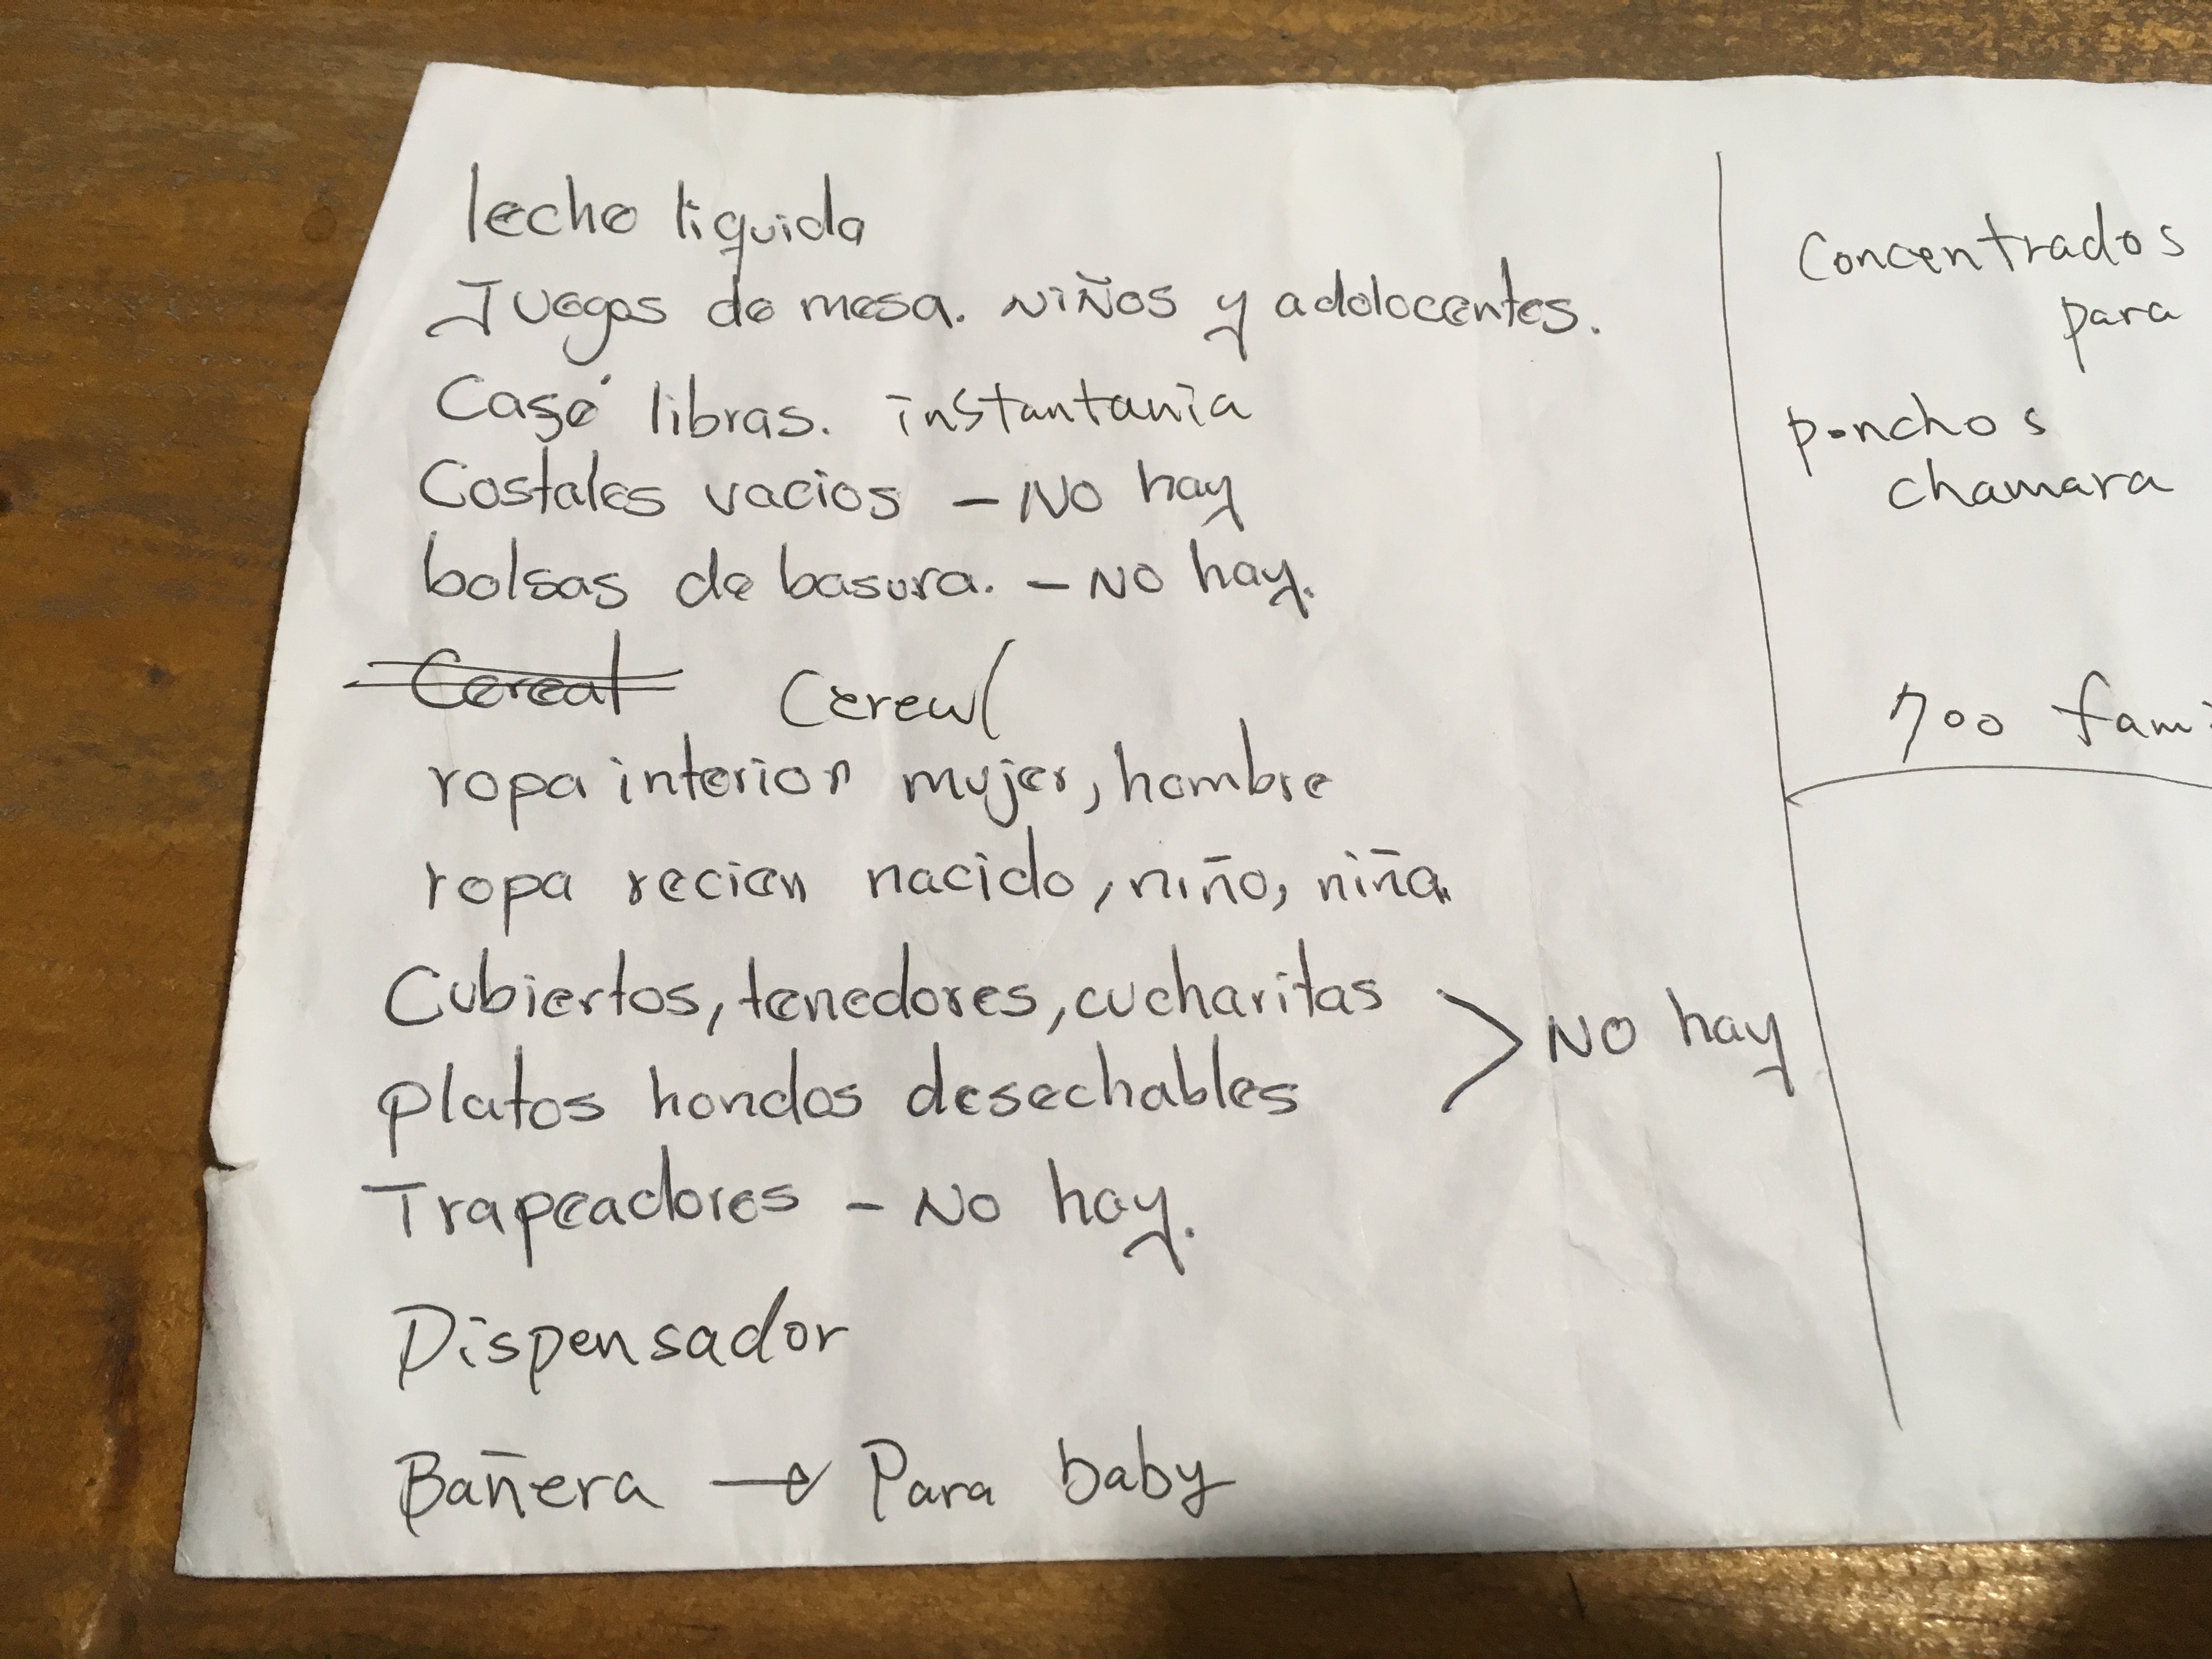 leche liquida
Juegos de mesa. niños y adolocentes.
Café libras. instantania
Costales vacios - No hay
bolsas de basura. - No hay.
Cereal Cereal
ropa interior mujer, hombre
ropa recien nacido, niño, niña.
Cubiertos, tenedores, cucharitas
platos hondos desechables
> No hay
Trapeadores - No hay.
Dispensador
Bañera → Para baby
Concentrados
para
ponchos
chamara
700 fami